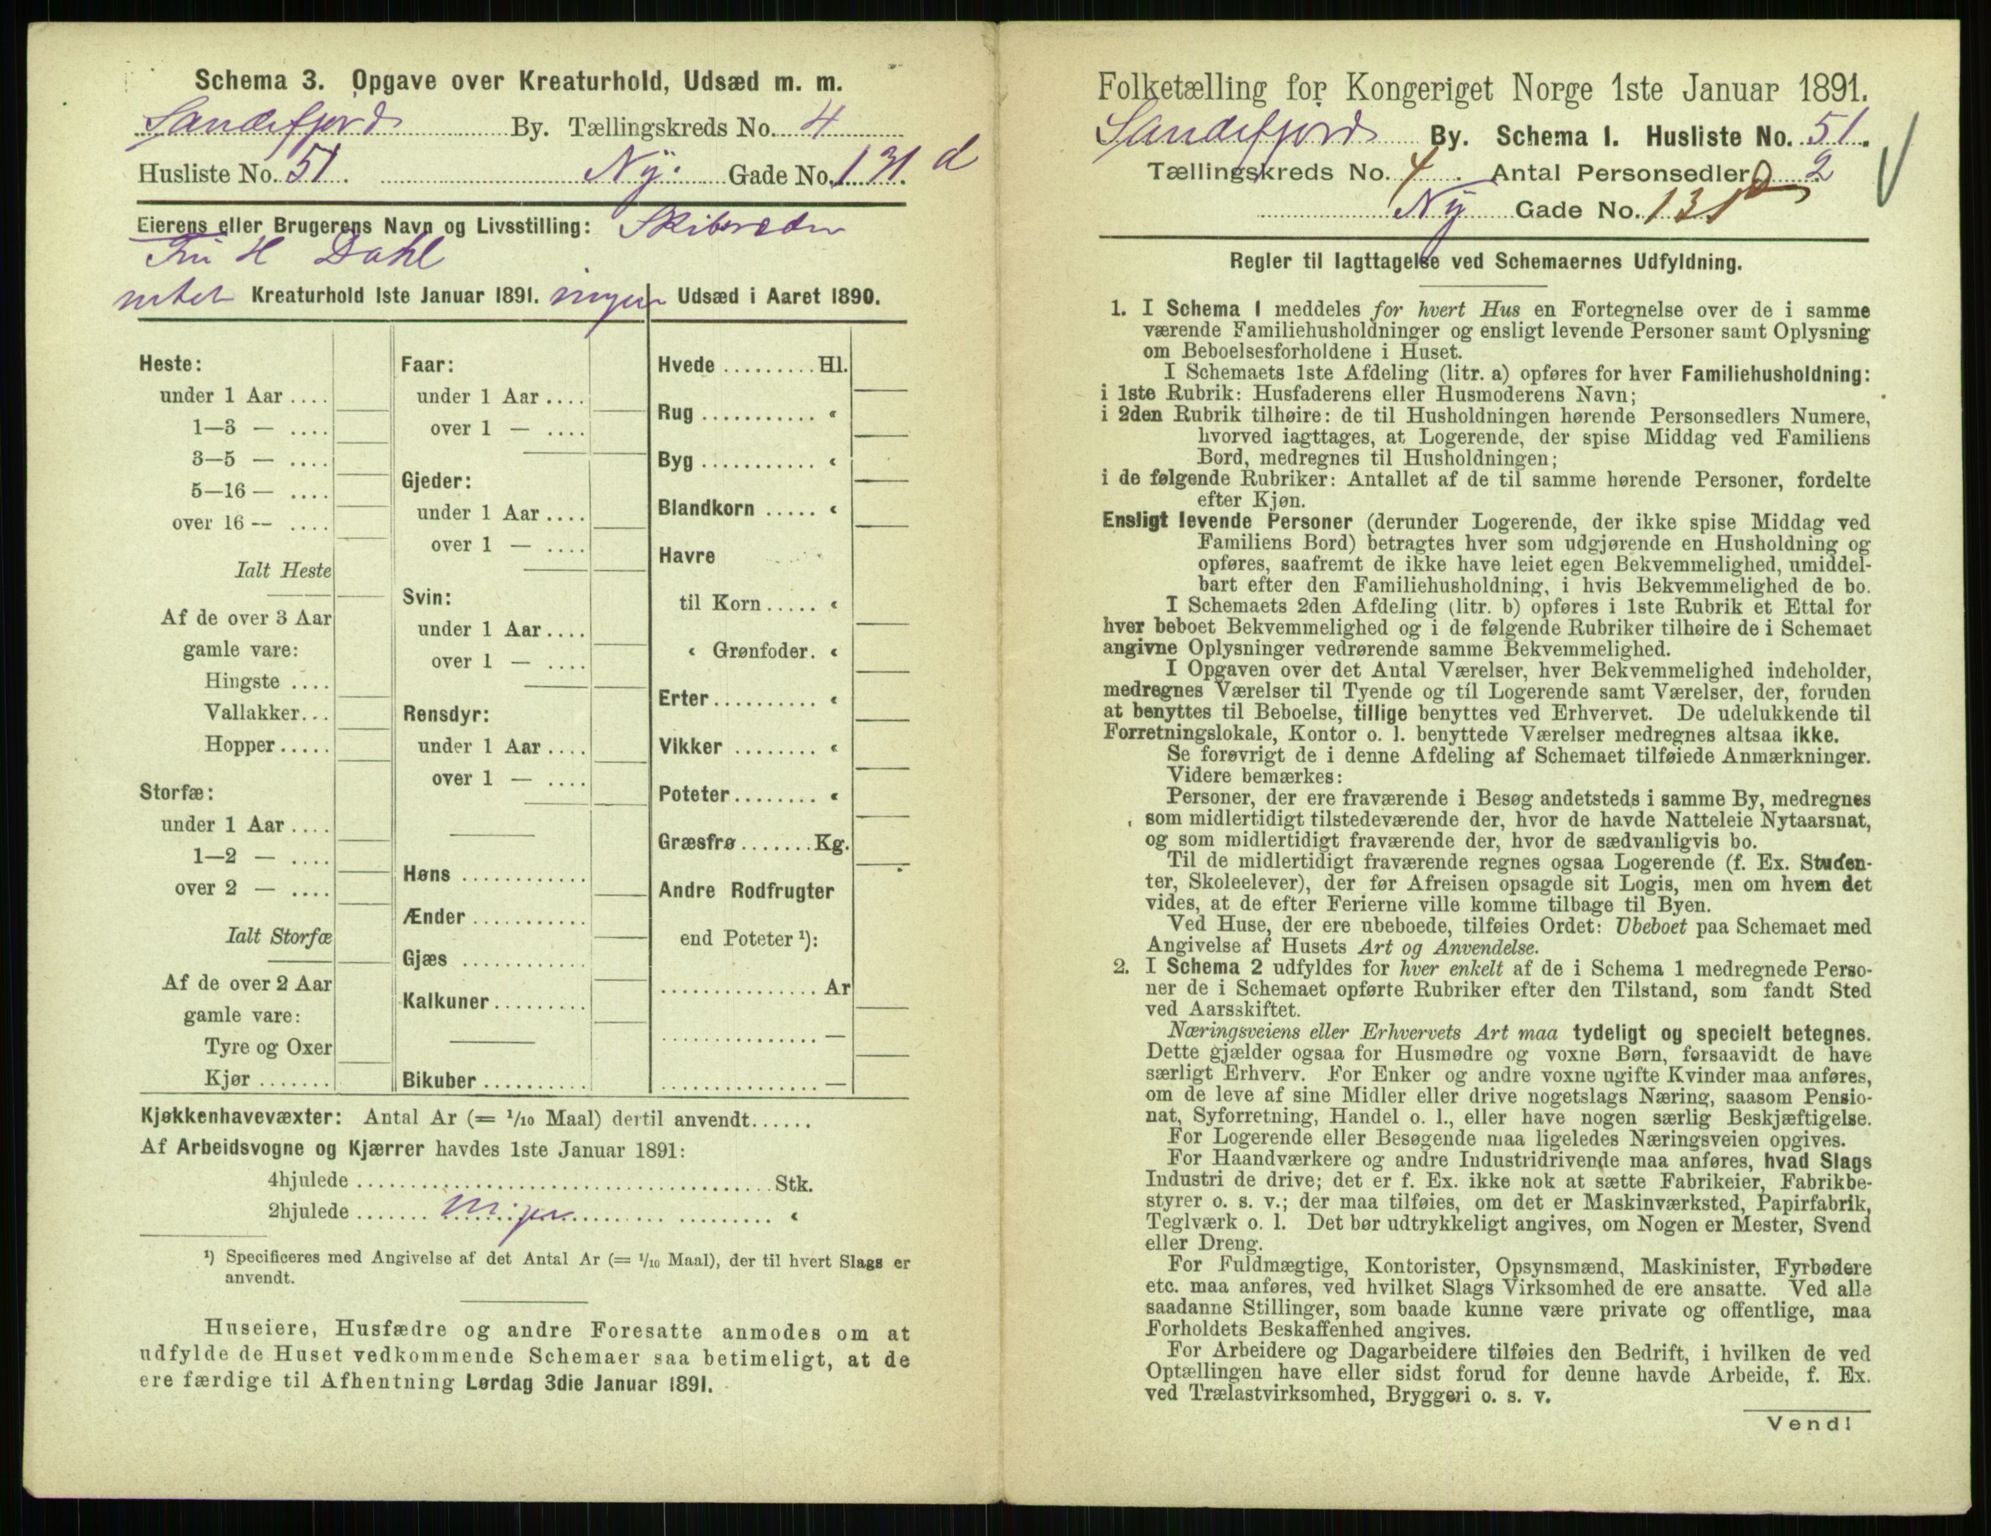 Schema 3. Opgave over Kreaturhold, Udsæd m. m.
Sandefjord By. Tællingskreds No. 4
Husliste No. 51. Ny. Gade No. 131. d
Eierens eller Brugerens Navn og Livsstilling: Skibsreder
Fru H Dahl
intet Kreaturhold 1ste Januar 1891. ingen Udsæd i Aaret 1890.
Heste:
under 1 Aar ....
1—3 — ....
3—5 — ....
5—16 — ....
over 16 — ....
Ialt Heste
Af de over 3 Aar
gamle vare:
Hingste ....
Vallakker...
Hopper.....
Storfæ:
under 1 Aar ....
1—2 — ....
over 2 — ....
Ialt Storfæ
Af de over 2 Aar
gamle vare:
Tyre og Oxer
Kjør .......
Faar:
under 1 Aar ....
over 1 — ....
Gjeder:
under 1 Aar ....
over 1 — ....
Svin:
under 1 Aar ....
over 1 — ....
Rensdyr:
under 1 Aar ....
over 1 — ....
Høns ............
Ænder ...........
Gjæs ............
Kalkuner.........
Bikuber ..........
Hvede ......... Hl.
Rug ........... «
Byg ........... «
Blandkorn ..... «
Havre
til Korn ..... «
« Grønfoder. «
Erter......... «
Vikker ........ «
Poteter........ «
Græsfrø ....... Kg.
Andre Rodfrugter
end Poteter ¹):
............... Ar
............... —
............... —
Kjøkkenhavevæxter: Antal Ar (= 1/10 Maal) dertil anvendt......
Af Arbeidsvogne og Kjærrer havdes 1ste Januar 1891:
4hjulede ........................ Stk.
2hjulede ....... ingen ......... «
¹) Specificeres med Angivelse af det Antal Ar (= 1/10 Maal), der til hvert Slags er
anvendt.
Huseiere, Husfædre og andre Foresatte anmodes om at
udfylde de Huset vedkommende Schemaer saa betimeligt, at de
ere færdige til Afhentning Lørdag 3die Januar 1891.
Folketælling for Kongeriget Norge 1ste Januar 1891.
Sandefjord By. Schema 1. Husliste No. 51.
Tællingskreds No. 4. Antal Personsedler 2
Ny Gade No. 131 d
Regler til Iagttagelse ved Schemaernes Udfyldning.
1. I Schema 1 meddeles for hvert Hus en Fortegnelse over de i samme
værende Familiehusholdninger og ensligt levende Personer samt Oplysning
om Beboelsesforholdene i Huset.
I Schemaets 1ste Afdeling (litr. a) opføres for hver Familiehusholdning:
i 1ste Rubrik: Husfaderens eller Husmoderens Navn;
i 2den Rubrik tilhøire: de til Husholdningen hørende Personsedlers Numere,
hvorved iagttages, at Logerende, der spise Middag ved Familiens
Bord, medregnes til Husholdningen;
i de følgende Rubriker: Antallet af de til samme hørende Personer, fordelte
efter Kjøn.
Ensligt levende Personer (derunder Logerende, der ikke spise Middag ved
Familiens Bord) betragtes hver som udgjørende en Husholdning og
opføres, saafremt de ikke have leiet egen Bekvemmelighed, umiddel-
bart efter den Familiehusholdning, i hvis Bekvemmelighed de bo.
I Schemaets 2den Afdeling (litr. b) opføres i 1ste Rubrik et Ettal for
hver beboet Bekvemmelighed og i de følgende Rubriker tilhøire de i Schemaet
angivne Oplysninger vedrørende samme Bekvemmelighed.
I Opgaven over det Antal Værelser, hver Bekvemmelighed indeholder,
medregnes Værelser til Tyende og til Logerende samt Værelser, der, foruden
at benyttes til Beboelse, tillige benyttes ved Erhvervet. De udelukkende til
Forretningslokale, Kontor o. l. benyttede Værelser medregnes altsaa ikke.
Se forøvrigt de i denne Afdeling af Schemaet tilføiede Anmærkninger.
Videre bemærkes:
Personer, der ere fraværende i Besøg andetsteds i samme By, medregnes
som midlertidigt tilstedeværende der, hvor de havde Natteleie Nytaarsnat,
og som midlertidigt fraværende der, hvor de sædvanligvis bo.
Til de midlertidigt fraværende regnes ogsaa Logerende (f. Ex. Studen-
ter, Skoleelever), der før Afreisen opsagde sit Logis, men om hvem det
vides, at de efter Ferierne ville komme tilbage til Byen.
Ved Huse, der ere ubeboede, tilføies Ordet: Ubeboet paa Schemaet med
Angivelse af Husets Art og Anvendelse.
2. I Schema 2 udfyldes for hver enkelt af de i Schema 1 medregnede Perso-
ner de i Schemaet opførte Rubriker efter den Tilstand, som fandt Sted
ved Aarsskiftet.
Næringsveiens eller Erhvervets Art maa tydeligt og specielt betegnes.
Dette gjælder ogsaa for Husmødre og voxne Børn, forsaavidt de have
særligt Erhverv. For Enker og andre voxne ugifte Kvinder maa anføres,
om de leve af sine Midler eller drive nogetslags Næring, saasom Pensio-
nat, Syforretning, Handel o. l., eller have nogen særlig Beskjæftigelse.
For Logerende eller Besøgende maa ligeledes Næringsveien opgives.
For Haandværkere og andre Industridrivende maa anføres, hvad Slags
Industri de drive; det er f. Ex. ikke nok at sætte Fabrikeier, Fabrikbe-
styrer o. s. v.; der maa tilføies, om det er Maskinværksted, Papirfabrik,
Teglværk o. l. Det bør udtrykkeligt angives, om Nogen er Mester, Svend
eller Dreng.
For Fuldmægtige, Kontorister, Opsynsmænd, Maskinister, Fyrbødere
etc. maa anføres, ved hvilket Slags Virksomhed de ere ansatte. Ved alle
saadanne Stillinger, som baade kunne være private og offentlige, maa
Forholdets Beskaffenhed angives.
For Arbeidere og Dagarbeidere tilføies den Bedrift, i hvilken de ved
Optællingen have eller sidst forud for denne havde Arbeide, f. Ex.
ved Trælastvirksomhed, Bryggeri o. s. v.
Vend!